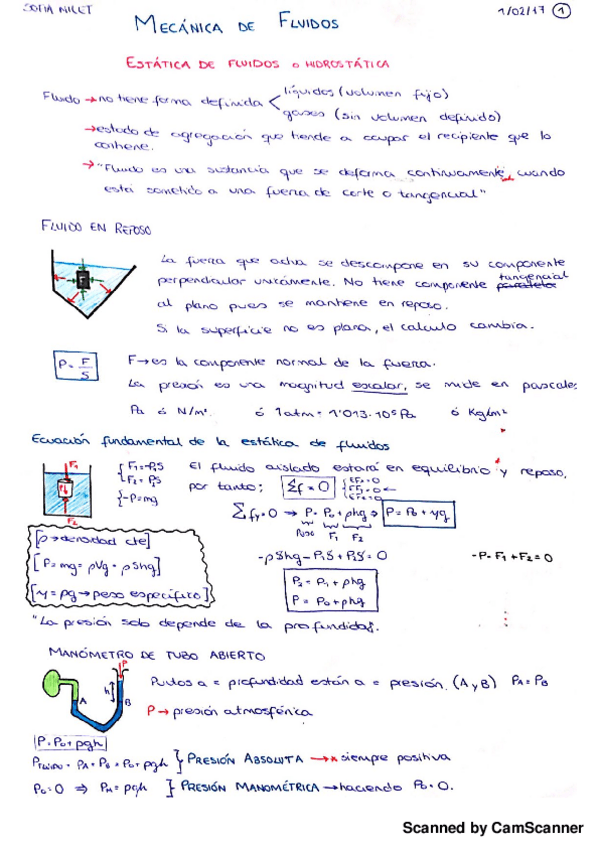 SOFIA MILET
1/02/17 1
MECÁNICA DE FLUIDOS
ESTÁTICA DE FLUIDOS o HIDROSTÁTICA
Fluido → no tiene forma definida < líquidos (volumen fijo)
gases (sin volumen definido)
→ estado de agregación que tiende a ocupar el recipiente que lo
contiene.
→ "Fluido es una sustancia que se deforma continuamente, cuando
está sometido a una fuerza de corte o tangencial"
FLUIDO EN REPOSO
La fuerza que actua se descompone en su componente
perpendicular unicamente. No tiene componente tangencial
al plano pues se mantiene en reposo.
Si la superficie no es plana, el calculo cambia.
P = F/S
F → es la componente normal de la fuerza.
La presión es una magnitud escalar, se mide en pascales
Pa ó N/m². ó 1atm = 1'013·10⁵ Pa ó Kg/m²
Ecuación fundamental de la estática de fluidos
F₁
F₂
{ F₁ = -P₁S
F₂ = P₂S
-P = mg
El fluido aislado estará en equilibrio y reposo,
por tanto; Σf = 0
Σfy = 0 → P = P₀ + ρhg → P = P₀ + γg
F₁ F₂
[ρ → densidad cte]
[P = mg = ρVg = ρShg]
[γ = ρg → peso específico]
-ρShg - P₁S + P₂S = 0
-P - F₁ + F₂ = 0
P₂ = P₁ + ρhg
P = P₀ + ρhg
"La presión solo depende de la profundidad.
MANÓMETRO DE TUBO ABIERTO
P
h
A
B
Puntos a = profundidad están a = presión. (A y B) PA = PB
P → presión atmosférica
P = P₀ + ρgh
PFLUIDO = PA = PB = P₀ + ρgh } PRESIÓN ABSOLUTA → siempre positiva
P₀ = 0 ⇒ PM = ρgh } PRESIÓN MANOMÉTRICA → haciendo P₀ = 0.
Scanned by CamScanner